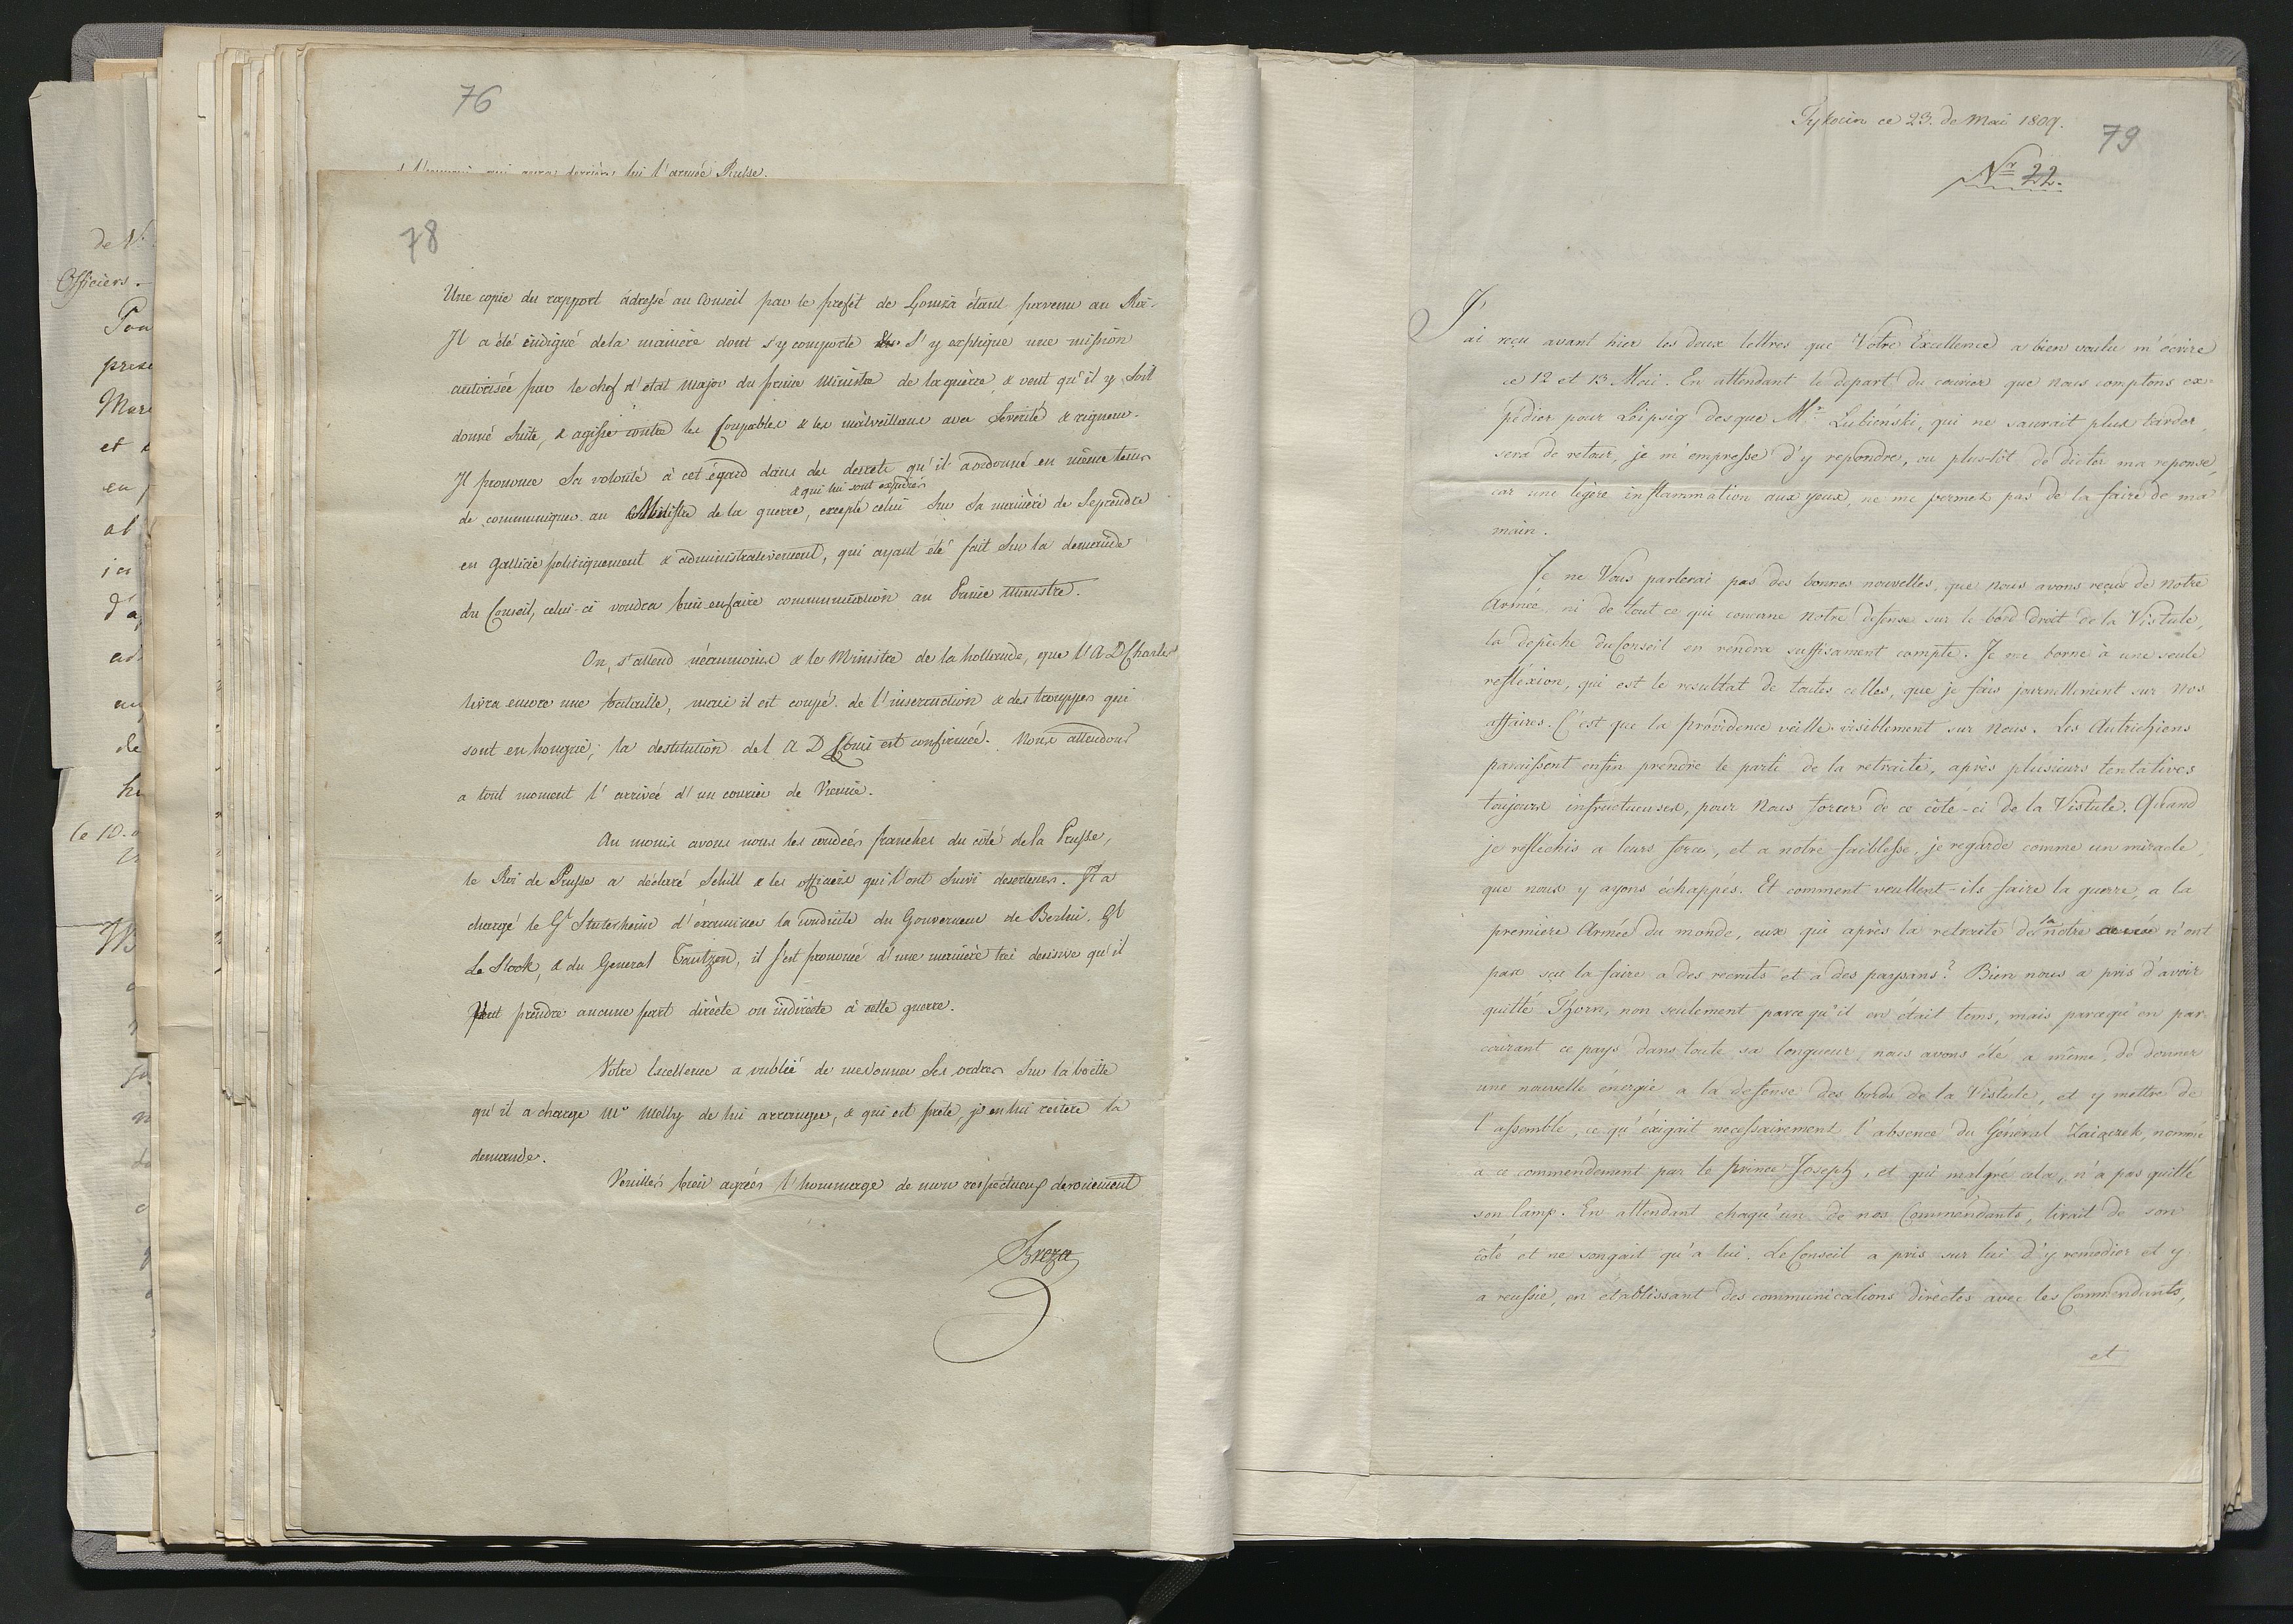 76
l'armée Russe.
78
Une copie du rapport adressé au Conseil par le prefet de Lomza étant parvenu au Roi.
Il a été indigné de la manière dont s'y comporte & s'y explique une mission
autorisée par le chef d'etat major du prince Ministre de la guerre, & veut qu'il y soit
donné suite, & agisse contre les Coupables & les malveillans avec severité & rigueur.
Il prononce sa volonté à cet égard dans des decrets qu'il a ordonné en même tems
& qui lui sont expediés
de communiquer au Ministre de la guerre, excepté celui sur sa manière de se prendre
en Gallicie politiquement & administrativement, qui ayant été fait sur la demande
du Conseil, celui-ci voudra bien en faire communication au Prince Ministre.
On s'attend néanmoins & le Ministre de la hollande, que l'A D Charles
livra encore une bataille, mais il est coupé de l'insurrection & des trouppes qui
sont en hongrie; la destitution de l A D Louis est confirmée. Nous attendons
a tout moment l'arrivée d'un courier de Vienne.
Au moins avons nous les coudées franches du côté de la Prusse,
le Roi de Prusse a déclaré Schill & les officiers qui l'ont suivi deserteurs. Il a
chargé le Gl Stuterheim d'examiner la conduite du Gouverneur de Berlin. Gl
Le Stock, & du General Tautzen, il s'est prononcé d'une manière très decisive qu'il
prendre aucune part directe ou indirecte à cette guerre.
Votre Excellence a oublié de me donner ses ordres sur la boëtte
qu'il a chargé Mr Melly de lui arranger, & qui est prete, je en lui reitere la
demande.
Veuillés bien agréer l'hommage de mon respectueux devouement
Breza
Tykocin ce 23. de Mai 1809.
79
Nr 22.
J'ai reçu avant hier les deux lettres que Votre Excellence a bien voulu m'écrire
ce 12 et 13 Mai. En attendant le depart du courier que nous comptons ex-
pédier pour Leipsig desque Mr Lubieński, qui ne saurait plus tarder,
sera de retour, je m'empresse d'y repondre, ou plus-tôt de dicter ma reponse,
car une légère inflammation aux yeux, ne me permet pas de la faire de ma
main.
Je ne Vous parlerai pas des bonnes nouvelles, que nous avons reçues de notre
Armée, ni de tout ce qui concerne notre defense sur le bord droit de la Vistule,
la depêche du Conseil en rendra suffisament compte. Je me borne à une seule
refléxion, qui est le resultat de toutes celles, que je fais journellement sur nos
affaires. C'est que la providence veille visiblement sur nous. Les Autrichiens
paraissent enfin prendre le parti de la retraite, après plusieurs tentatives
toujours infructueuses, pour nous forcer de ce côté-ci de la Vistule. Quand
je refléchis a leurs forces, et a notre faiblesse, je regarde comme un miracle,
que nous y ayons échappés. Et comment veullent-ils faire la guerre, a la
première Armée du monde, eux qui après la retraite de la notre n'ont
pas sçu la faire a des recruts et a des paysans? Bien nous a pris d'avoir
quitté Thorn, non seulement parce qu'il en était tems, mais parcequ'en par-
courant ce pays dans toute sa longueur, nous avons été a même, de donner
une nouvelle énergie a la defense des bords de la Vistule, et y mettre de
l'assemble, ce qu'éxigait necessairement l'absence du Général Zaiączek, nommé
a ce commendement par le prince Joseph, et qui malgré cela, n'a pas quitté
son Camp. En attendant chaqu'un de nos Commendants, tirait de son
côté et ne songait qu'a lui. Le Conseil a pris sur lui d'y remedier et y
a reussie, en établissant des communications directes avec les Commendants,
et